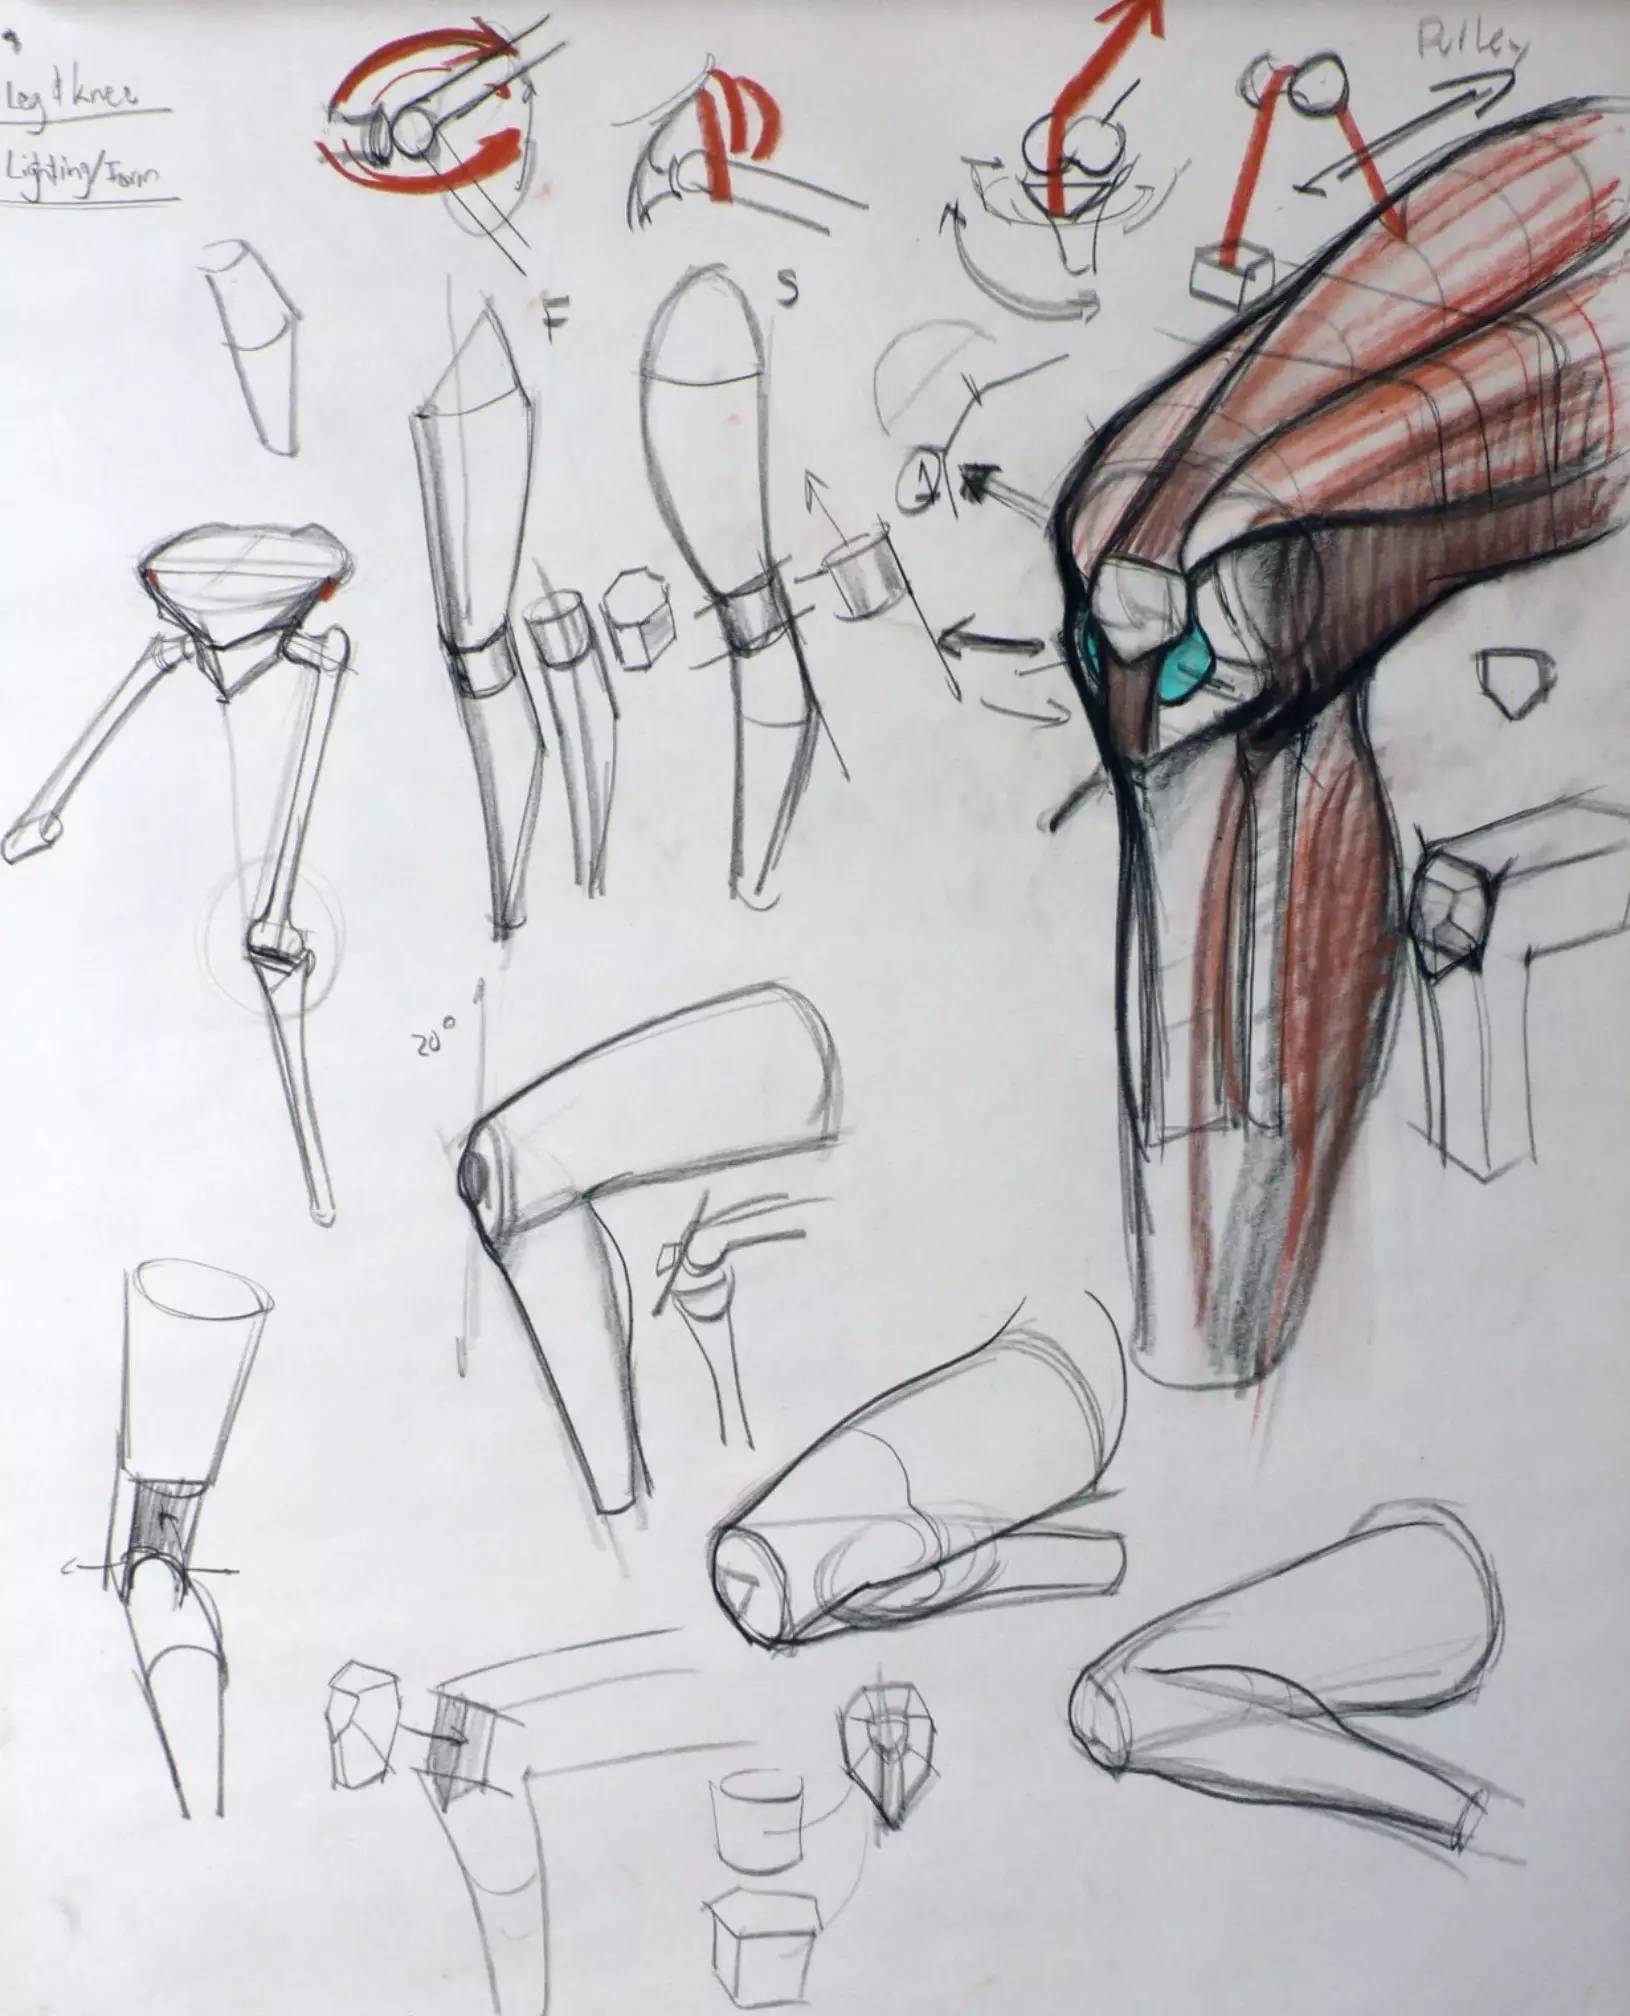 Leg & knee
Lighting/Form
Pulley
F
S
20°